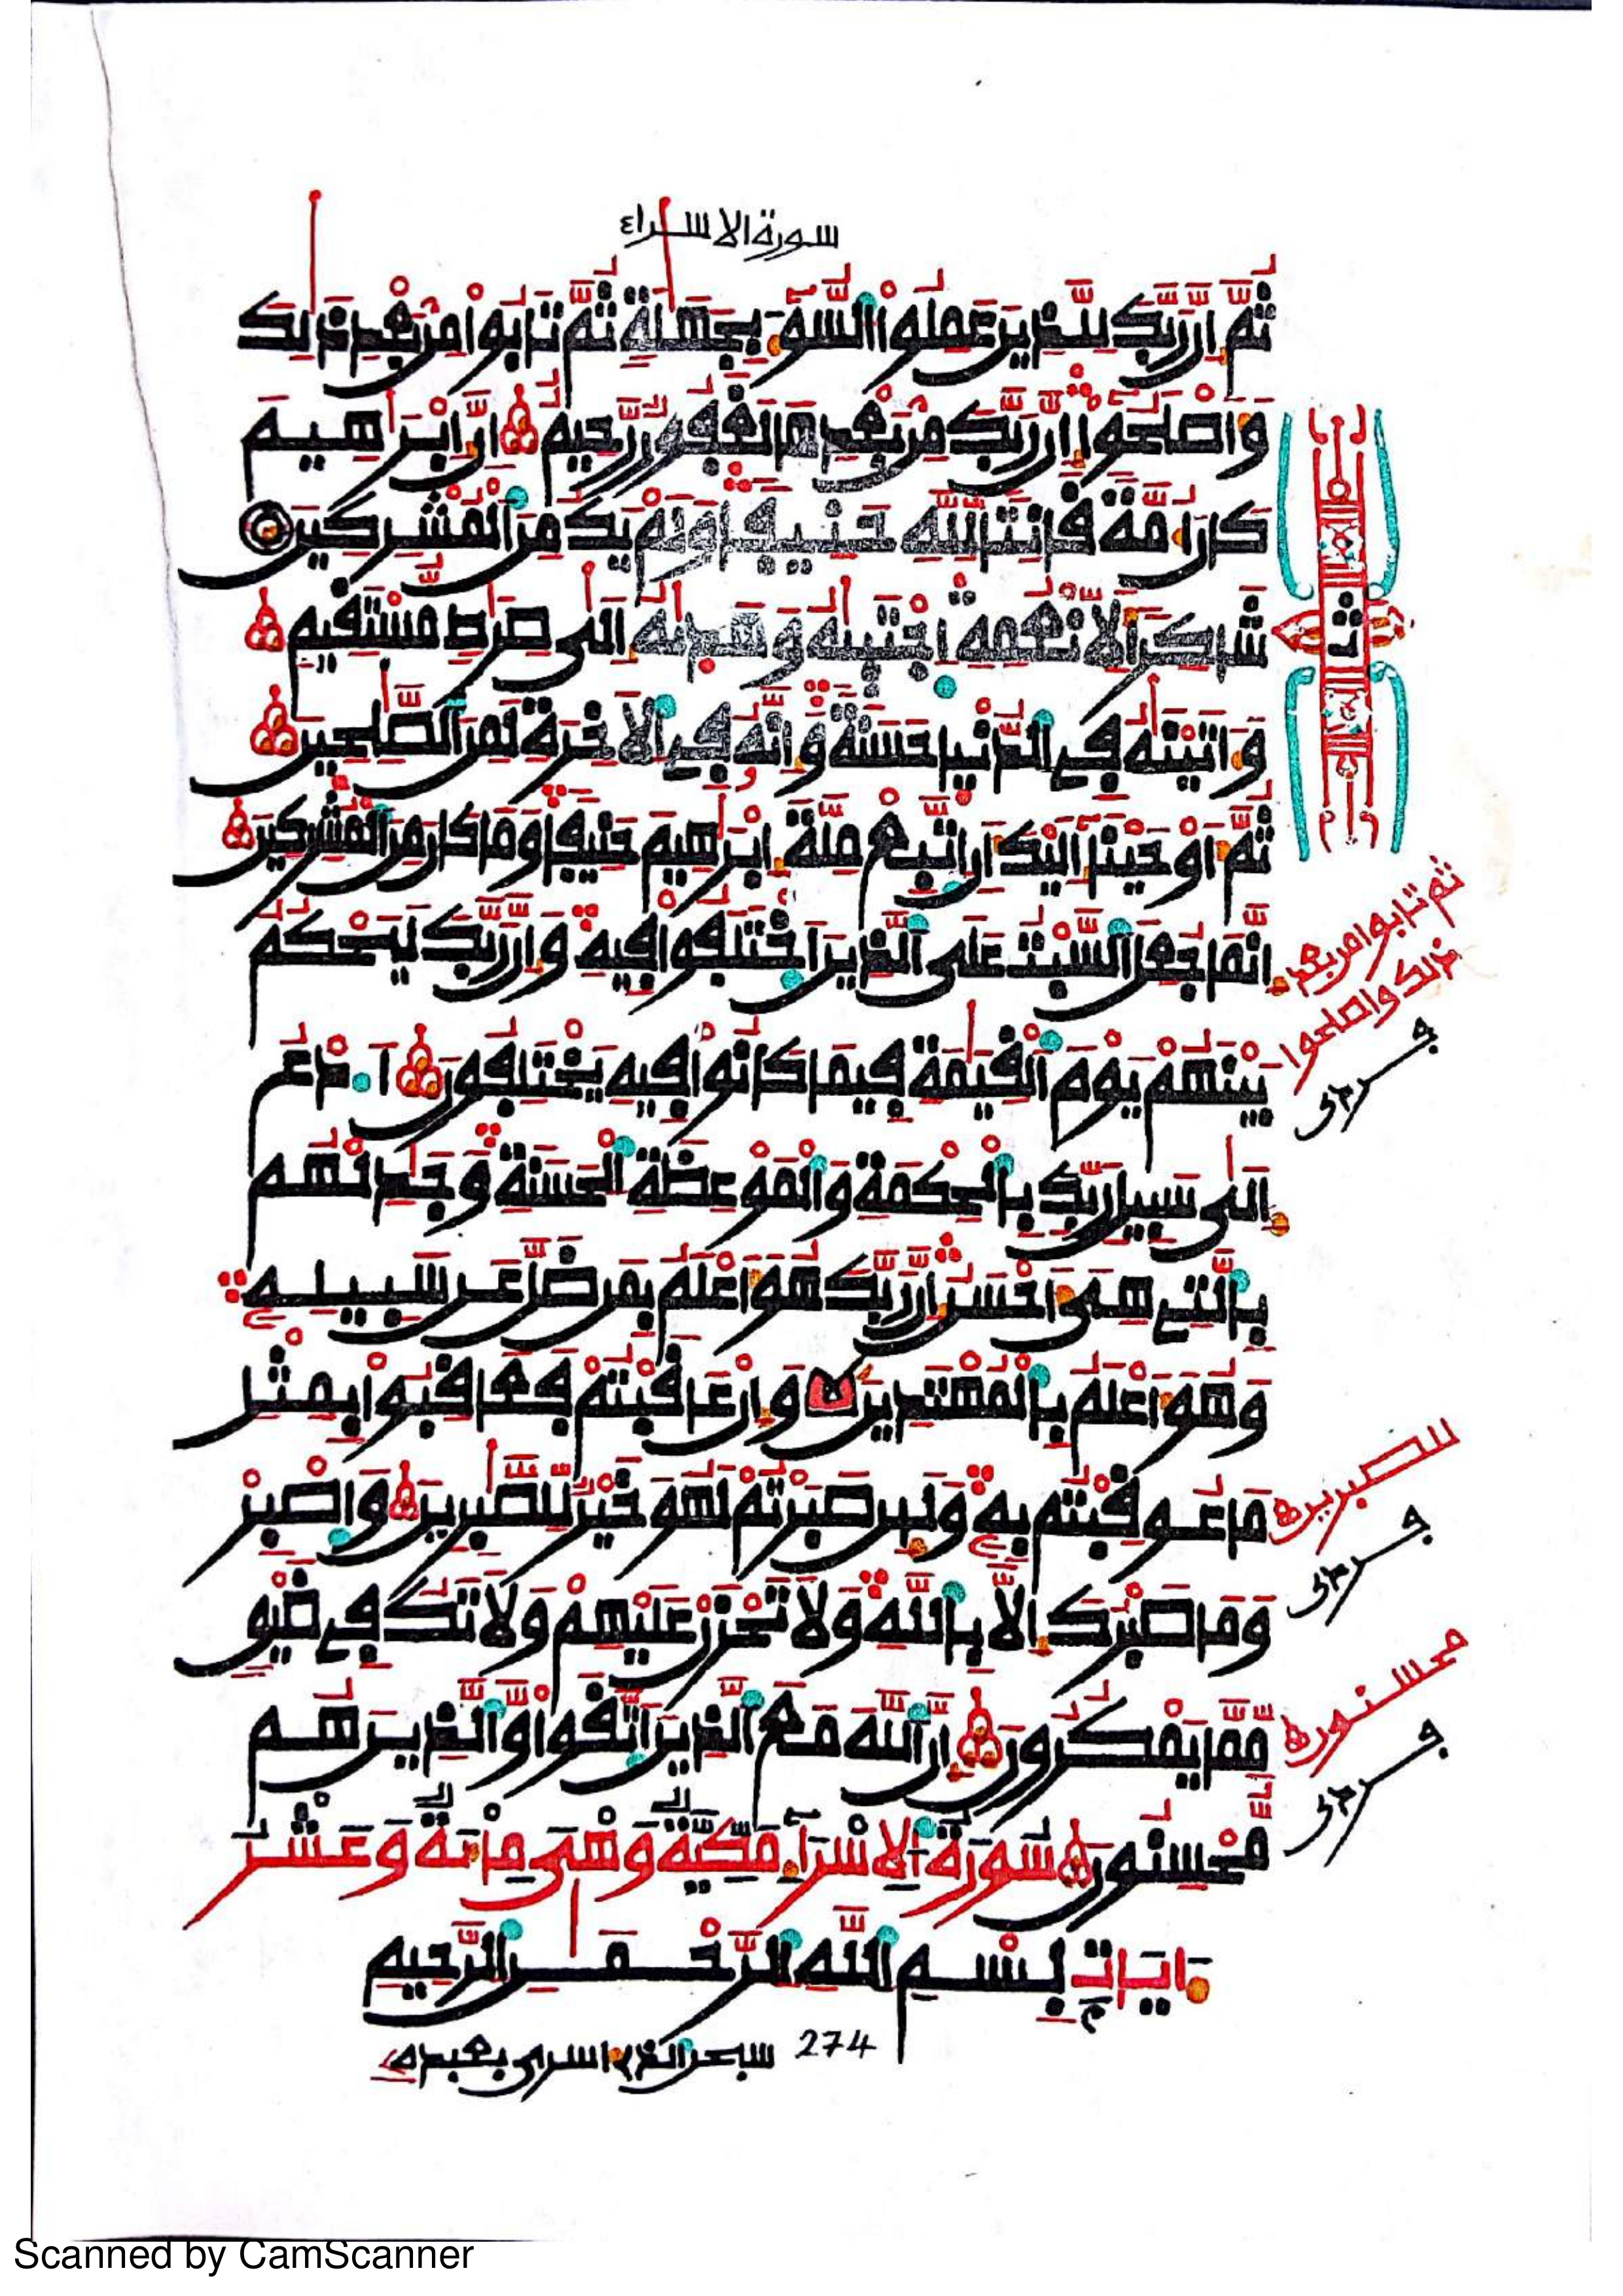 سورة الاسراء
ثُمَّ إِنَّ رَبَّكَ لِلَّذِينَ عَمِلُوا۟ السُّوٓءَ بِجَهَٰلَةٖ ثُمَّ تَابُوا۟ مِنۢ بَعْدِ ذَٰلِكَ
وَأَصْلَحُوٓا۟ إِنَّ رَبَّكَ مِنۢ بَعْدِهَا لَغَفُورٞ رَّحِيمٌ إِنَّ إِبْرَٰهِيمَ
كَانَ أُمَّةٗ قَانِتٗا لِّلَّهِ حَنِيفٗا وَلَمْ يَكُ مِنَ الْمُشْرِكِينَ
شَاكِرٗا لِّأَنْعُمِهِ اجْتَبَىٰهُ وَهَدَىٰهُ إِلَىٰ صِرَٰطٖ مُّسْتَقِيمٖ
وَءَاتَيْنَٰهُ فِي الدُّنْيَا حَسَنَةٗ وَإِنَّهُۥ فِي الَاخِرَةِ لَمِنَ الصَّٰلِحِينَ
ثُمَّ أَوْحَيْنَآ إِلَيْكَ أَنِ اتَّبِعْ مِلَّةَ إِبْرَٰهِيمَ حَنِيفٗا وَمَا كَانَ مِنَ الْمُشْرِكِينَ
إِنَّمَا جُعِلَ السَّبْتُ عَلَى الَّذِينَ اخْتَلَفُوا۟ فِيهِ وَإِنَّ رَبَّكَ لَيَحْكُمُ
بَيْنَهُمْ يَوْمَ الْقِيَٰمَةِ فِيمَا كَانُوا۟ فِيهِ يَخْتَلِفُونَ ادْعُ
إِلَىٰ سَبِيلِ رَبِّكَ بِالْحِكْمَةِ وَالْمَوْعِظَةِ الْحَسَنَةِ وَجَٰدِلْهُم
بِالَّتِي هِيَ أَحْسَنُ إِنَّ رَبَّكَ هُوَ أَعْلَمُ بِمَن ضَلَّ عَن سَبِيلِهِۦ
وَهُوَ أَعْلَمُ بِالْمُهْتَدِينَ وَإِنْ عَاقَبْتُمْ فَعَاقِبُوا۟ بِمِثْلِ
مَا عُوقِبْتُم بِهِۦ وَلَئِن صَبَرْتُمْ لَهُوَ خَيْرٞ لِّلصَّٰبِرِينَ وَاصْبِرْ
وَمَا صَبْرُكَ إِلَّا بِاللَّهِ وَلَا تَحْزَنْ عَلَيْهِمْ وَلَا تَكُ فِي ضَيْقٖ
مِّمَّا يَمْكُرُونَ إِنَّ اللَّهَ مَعَ الَّذِينَ اتَّقَوا۟ وَّالَّذِينَ هُم
مُّحْسِنُونَ سُورَةُ الِاسْرَآءِ مَكِّيَّةٌ وَهْيَ مِائَةٌ وَعَشْرُ
ءَايَاتٍ بِسْمِ اللَّهِ الرَّحْمَٰنِ الرَّحِيمِ
274 سبحن الذي اسرى بعبده
ثم تابوا من بعد
ذلك واصلحوا
للصبرين
محسنون
ثمن
Scanned by CamScanner